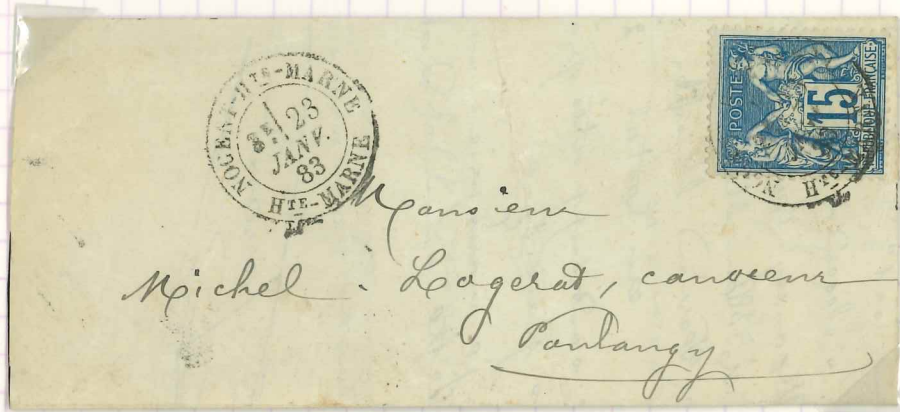 NOGENT-HTE-MARNE
3E 23
JANV.
83
HTE-MARNE
POSTES
15
RÉPUBLIQUE FRANÇAISE
Monsieur
Michel. Logerot, canoteur
Poulangy